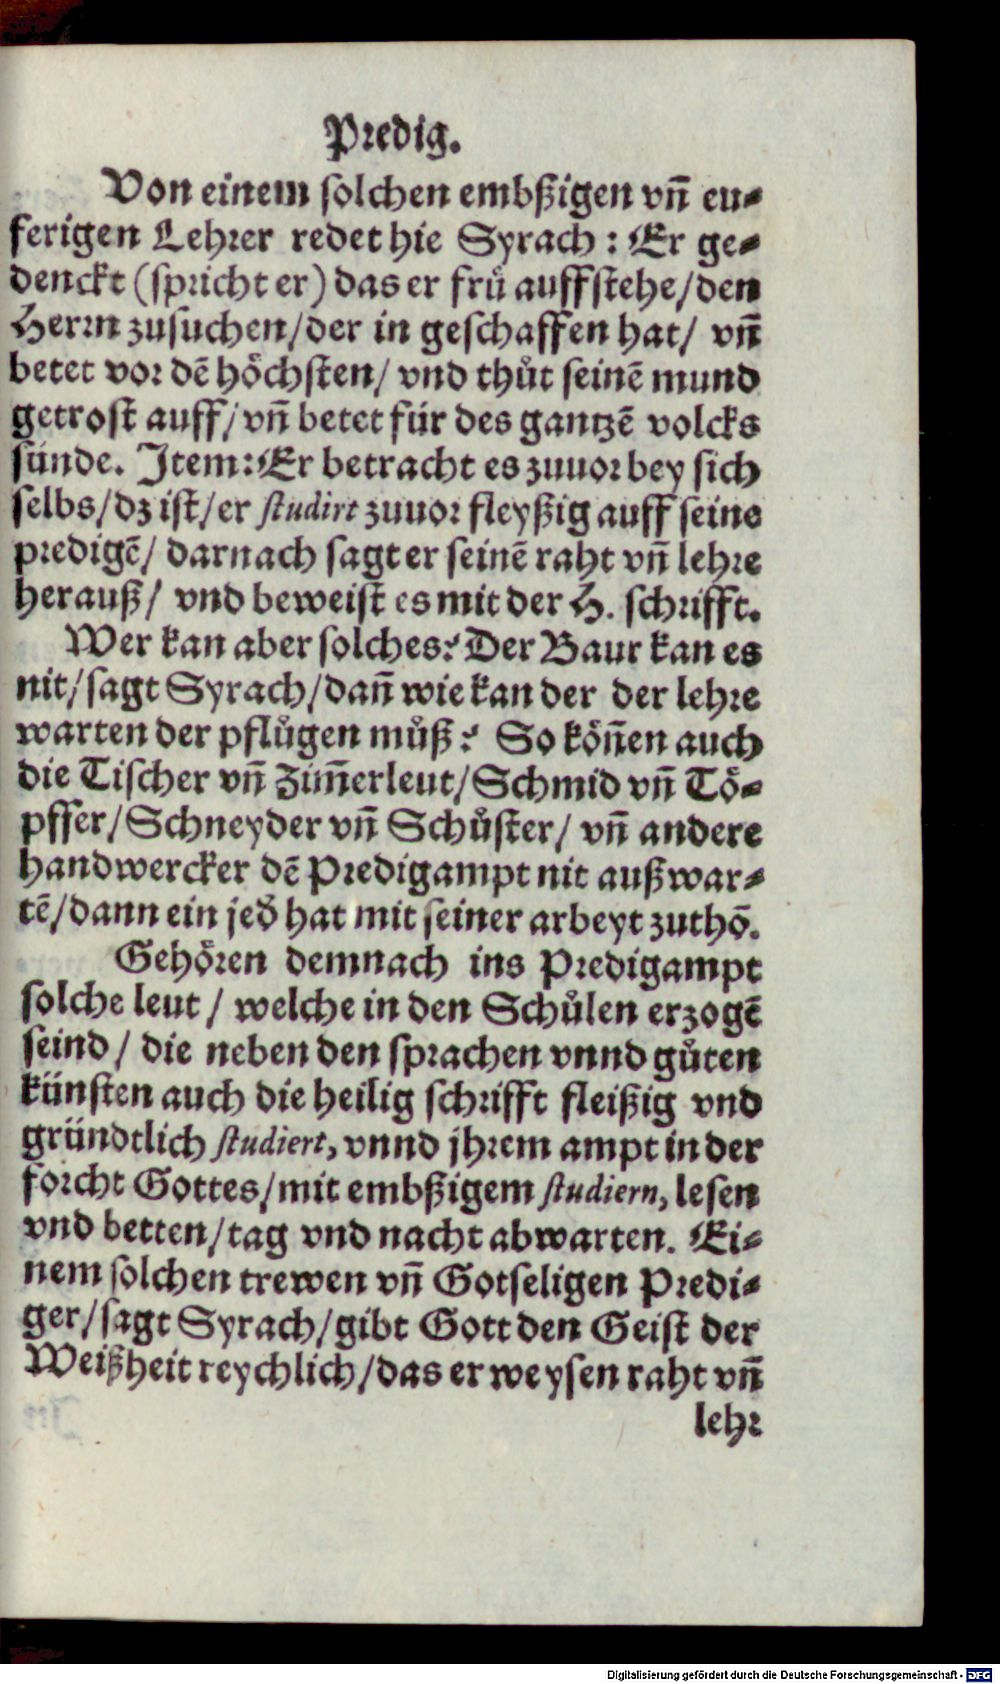 Predig.
Von einem solchen embßigen vn̄ eu-
ferigen Lehrer redet hie Syrach: Er ge-
denckt (spricht er) das er frů auffstehe/den
Herrn zusuchen/der in geschaffen hat/ vn̄
betet vor dē höchsten/ vnd thůt seinē mund
getrost auff/vn̄ betet für des gantzē volcks
sünde. Item: Er betracht es zuuor bey sich
selbs/dz ist/er studirt zuuor fleyßig auff seine
predigē/ darnach sagt er seinē raht vn̄ lehre
herauß/ vnd beweist es mit der H. schrifft.
Wer kan aber solches? Der Baur kan es
nit/sagt Syrach/dan̄ wie kan der der lehre
warten der pflůgen můß? So kön̄en auch
die Tischer vn̄ Zim̄erleut/Schmid vn̄ Tö-
pffer/Schneyder vn̄ Schůster/ vn̄ andere
handwercker dē Predigampt nit außwar-
tē/dann ein jed̄ hat mit seiner arbeyt zuthō.
Gehören demnach ins Predigampt
solche leut/ welche in den Schůlen erzogē
seind/ die neben den sprachen vnnd gůten
künsten auch die heilig schrifft fleißig vnd
gründtlich studiert, vnnd jhrem ampt in der
forcht Gottes/mit embßigem studiern, lesen
vnd betten/tag vnd nacht abwarten. Ei-
nem solchen trewen vn̄ Gotseligen Predi-
ger/sagt Syrach/gibt Gott den Geist der
Weißheit reychlich/das er weysen raht vn̄
lehr
Digitalisierung gefördert durch die Deutsche Forschungsgemeinschaft - DFG